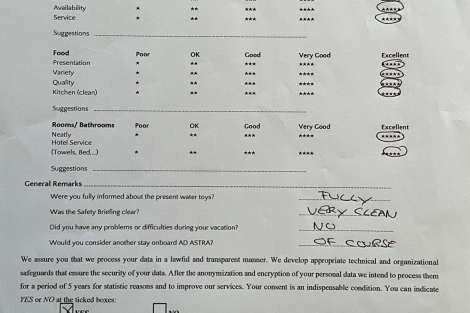 Availability * ** *** **** *****
Service * ** *** **** *****
Suggestions
Food Poor OK Good Very Good Excellent
Presentation * ** *** **** *****
Variety * ** *** **** *****
Quality * ** *** **** *****
Kitchen (clean) * ** *** **** *****
Suggestions
Rooms/ Bathrooms Poor OK Good Very Good Excellent
Neatly * ** *** **** *****
Hotel Service
(Towels, Bed,..) * ** *** **** *****
Suggestions
General Remarks
Were you fully informed about the present water toys? FULLY
Was the Safety Briefing clear? VERY CLEAN
Did you have any problems or difficulties during your vacation? NO
Would you consider another stay onboard AD ASTRA? OF COURSE
We assure you that we process your data in a lawful and transparent manner. We develop appropriate technical and organizational
safeguards that ensure the security of your data. After the anonymization and encryption of your personal data we intend to process them
for a period of 5 years for statistic reasons and to improve our services. Your consent is an indispensable condition. You can indicate
YES or NO at the ticked boxes:
YES NO